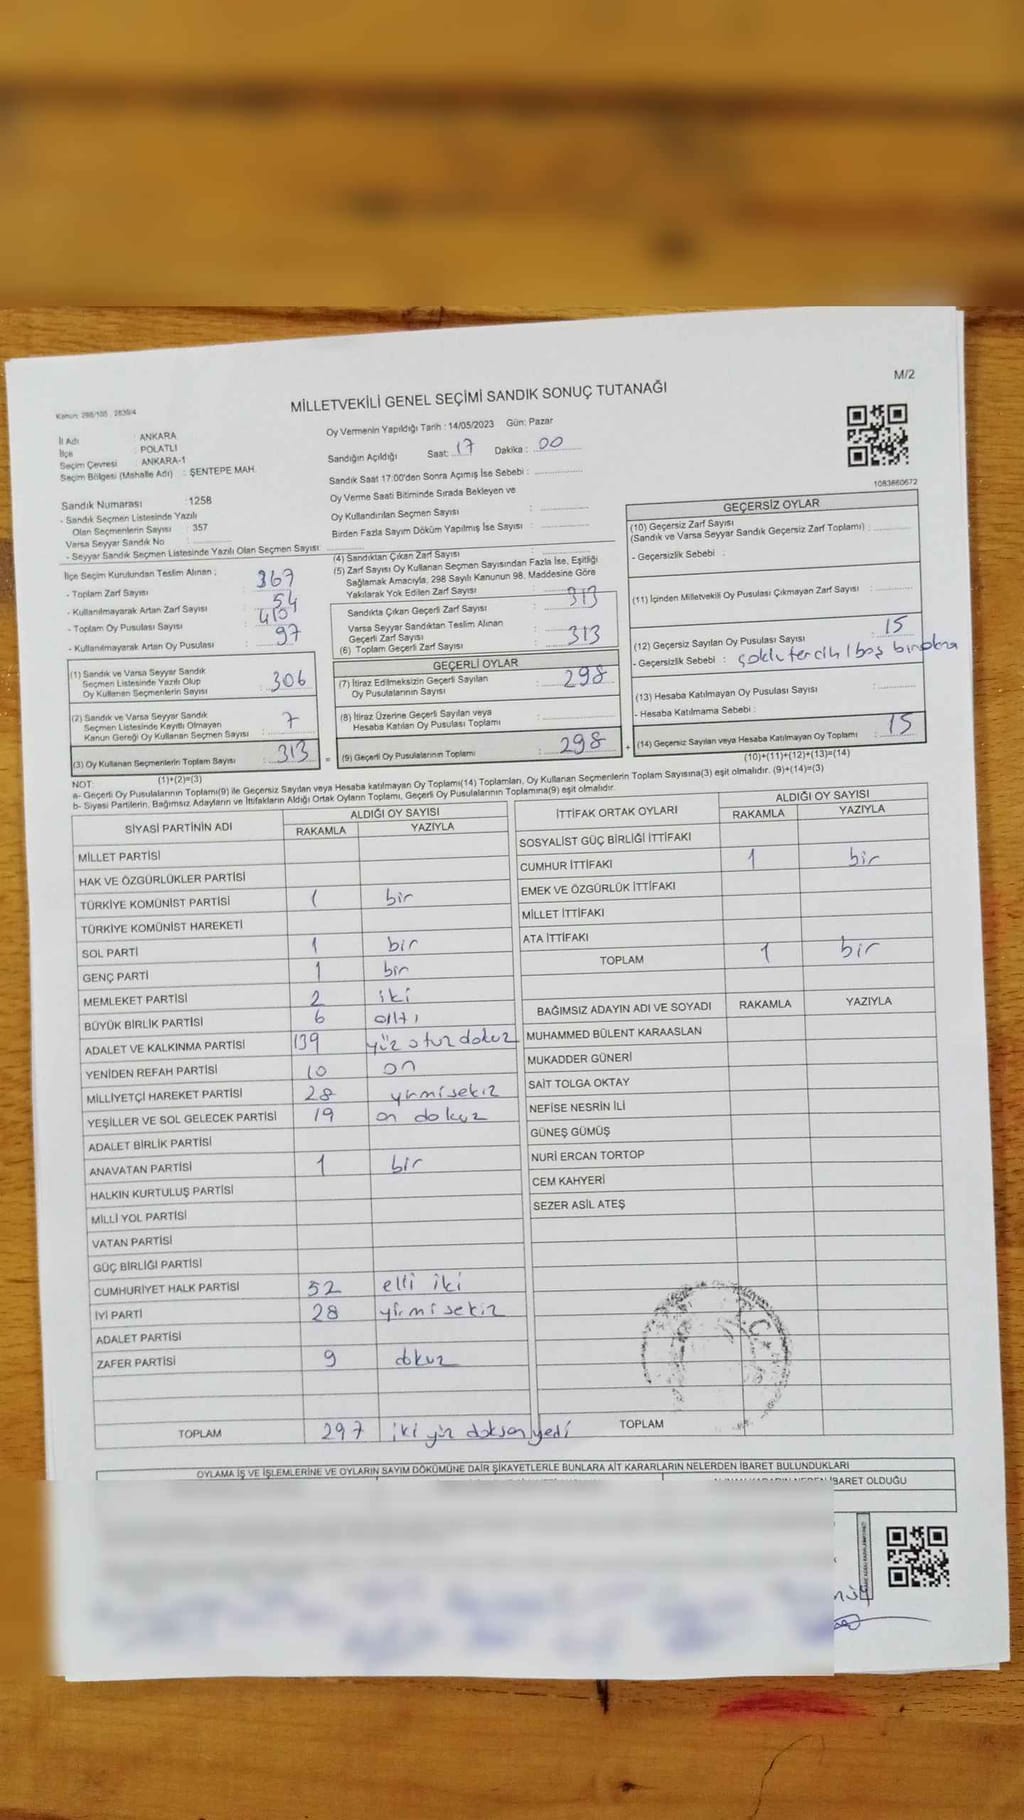 M/2
Kanun: 298/105 , 2839/4
MİLLETVEKİLİ GENEL SEÇİMİ SANDIK SONUÇ TUTANAĞI
İl Adı : ANKARA
İlçe : POLATLI
Seçim Çevresi : ANKARA-1
Seçim Bölgesi (Mahalle Adı) : ŞENTEPE MAH.
Sandık Numarası : 1258
- Sandık Seçmen Listesinde Yazılı
Olan Seçmenlerin Sayısı : 357
Varsa Seyyar Sandık No :
- Seyyar Sandık Seçmen Listesinde Yazılı Olan Seçmen Sayısı:
Oy Vermenin Yapıldığı Tarih : 14/05/2023 Gün: Pazar
Sandığın Açıldığı Saat: 17 Dakika : 00
Sandık Saat 17:00'den Sonra Açımış İse Sebebi :
Oy Verme Saati Bitiminde Sırada Bekleyen ve
Oy Kullandırılan Seçmen Sayısı :
Birden Fazla Sayım Döküm Yapılmış İse Sayısı :
1083860672
İlçe Seçim Kurulundan Teslim Alınan ;
- Toplam Zarf Sayısı : 367
- Kullanılmayarak Artan Zarf Sayısı : 54
- Toplam Oy Pusulası Sayısı :
- Kullanılmayarak Artan Oy Pusulası : 97
(1) Sandık ve Varsa Seyyar Sandık
Seçmen Listesinde Yazılı Olup
Oy Kullanan Seçmenlerin Sayısı : 306
(2) Sandık ve Varsa Seyyar Sandık
Seçmen Listesinde Kayıtlı Olmayan
Kanun Gereği Oy Kullanan Seçmen Sayısı : 7
(3) Oy Kullanan Seçmenlerin Toplam Sayısı : 313
(1)+(2)=(3)
(4) Sandıktan Çıkan Zarf Sayısı :
(5) Zarf Sayısı Oy Kullanan Seçmen Sayısından Fazla İse, Eşitliği
Sağlamak Amacıyla, 298 Sayılı Kanunun 98. Maddesine Göre
Yakılarak Yok Edilen Zarf Sayısı :
Sandıkta Çıkan Geçerli Zarf Sayısı : 313
Varsa Seyyar Sandıktan Teslim Alınan
Geçerli Zarf Sayısı :
(6) Toplam Geçerli Zarf Sayısı : 313
GEÇERLİ OYLAR
(7) İtiraz Edilmeksizin Geçerli Sayılan
Oy Pusulalarının Sayısı : 298
(8) İtiraz Üzerine Geçerli Sayılan veya
Hesaba Katılan Oy Pusulası Toplamı :
= (9) Geçerli Oy Pusulalarının Toplamı : 298 +
GEÇERSİZ OYLAR
(10) Geçersiz Zarf Sayısı
(Sandık ve Varsa Seyyar Sandık Geçersiz Zarf Toplamı) :
- Geçersizlik Sebebi :
(11) İçinden Milletvekili Oy Pusulası Çıkmayan Zarf Sayısı :
(12) Geçersiz Sayılan Oy Pusulası Sayısı : 15
- Geçersizlik Sebebi : çoklu tercih / boş bırakma
(13) Hesaba Katılmayan Oy Pusulası Sayısı :
- Hesaba Katılmama Sebebi :
(14) Geçersiz Sayılan veya Hesaba Katılmayan Oy Toplamı : 15
(10)+(11)+(12)+(13)=(14)
NOT:
a- Geçerli Oy Pusulalarının Toplamı(9) ile Geçersiz Sayılan veya Hesaba katılmayan Oy Toplamı(14) Toplamları, Oy Kullanan Seçmenlerin Toplam Sayısına(3) eşit olmalıdır. (9)+(14)=(3)
b- Siyasi Partilerin, Bağımsız Adayların ve İttifakların Aldığı Ortak Oyların Toplamı, Geçerli Oy Pusulalarının Toplamına(9) eşit olmalıdır.
SİYASİ PARTİNİN ADI ALDIĞI OY SAYISI
RAKAMLA YAZIYLA
MİLLET PARTİSİ
HAK VE ÖZGÜRLÜKLER PARTİSİ
TÜRKİYE KOMÜNİST PARTİSİ 1 bir
TÜRKİYE KOMÜNİST HAREKETİ
SOL PARTİ 1 bir
GENÇ PARTİ 1 bir
MEMLEKET PARTİSİ 2 iki
BÜYÜK BİRLİK PARTİSİ 6 altı
ADALET VE KALKINMA PARTİSİ 139 yüz otuz dokuz
YENİDEN REFAH PARTİSİ 10 on
MİLLİYETÇİ HAREKET PARTİSİ 28 yirmisekiz
YEŞİLLER VE SOL GELECEK PARTİSİ 19 on dokuz
ADALET BİRLİK PARTİSİ
ANAVATAN PARTİSİ 1 bir
HALKIN KURTULUŞ PARTİSİ
MİLLİ YOL PARTİSİ
VATAN PARTİSİ
GÜÇ BİRLİĞİ PARTİSİ
CUMHURİYET HALK PARTİSİ 52 elli iki
İYİ PARTİ 28 yirmi sekiz
ADALET PARTİSİ
ZAFER PARTİSİ 9 dokuz
TOPLAM 297 iki yüz doksan yedi
İTTİFAK ORTAK OYLARI ALDIĞI OY SAYISI
RAKAMLA YAZIYLA
SOSYALİST GÜÇ BİRLİĞİ İTTİFAKI
CUMHUR İTTİFAKI 1 bir
EMEK VE ÖZGÜRLÜK İTTİFAKI
MİLLET İTTİFAKI
ATA İTTİFAKI
TOPLAM 1 bir
BAĞIMSIZ ADAYIN ADI VE SOYADI RAKAMLA YAZIYLA
MUHAMMED BÜLENT KARAASLAN
MUKADDER GÜNERİ
SAİT TOLGA OKTAY
NEFİSE NESRİN İLİ
GÜNEŞ GÜMÜŞ
NURİ ERCAN TORTOP
CEM KAHYERİ
SEZER ASİL ATEŞ
TOPLAM
OYLAMA İŞ VE İŞLEMLERİNE VE OYLARIN SAYIM DÖKÜMÜNE DAİR ŞİKAYETLERLE BUNLARA AİT KARARLARIN NELERDEN İBARET BULUNDUKLARI
İBARET OLDUĞU